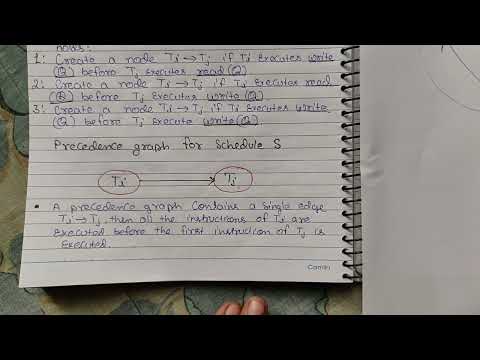 holds:
1: Create a node Ti → Tj if Ti executes write
(Q) before Tj executes read(Q)
2: Create a node Ti → Tj if Ti executes read
(Q) before Tj executes write (Q)
3: Create a node Ti → Tj if Ti executes write
(Q) before Tj execute write(Q)
Precedence graph for Schedule S
Ti → Tj
• A precedence graph contains a single edge
Ti → Tj, then all the instructions of Ti are
executed before the first instruction of Tj is
executed.